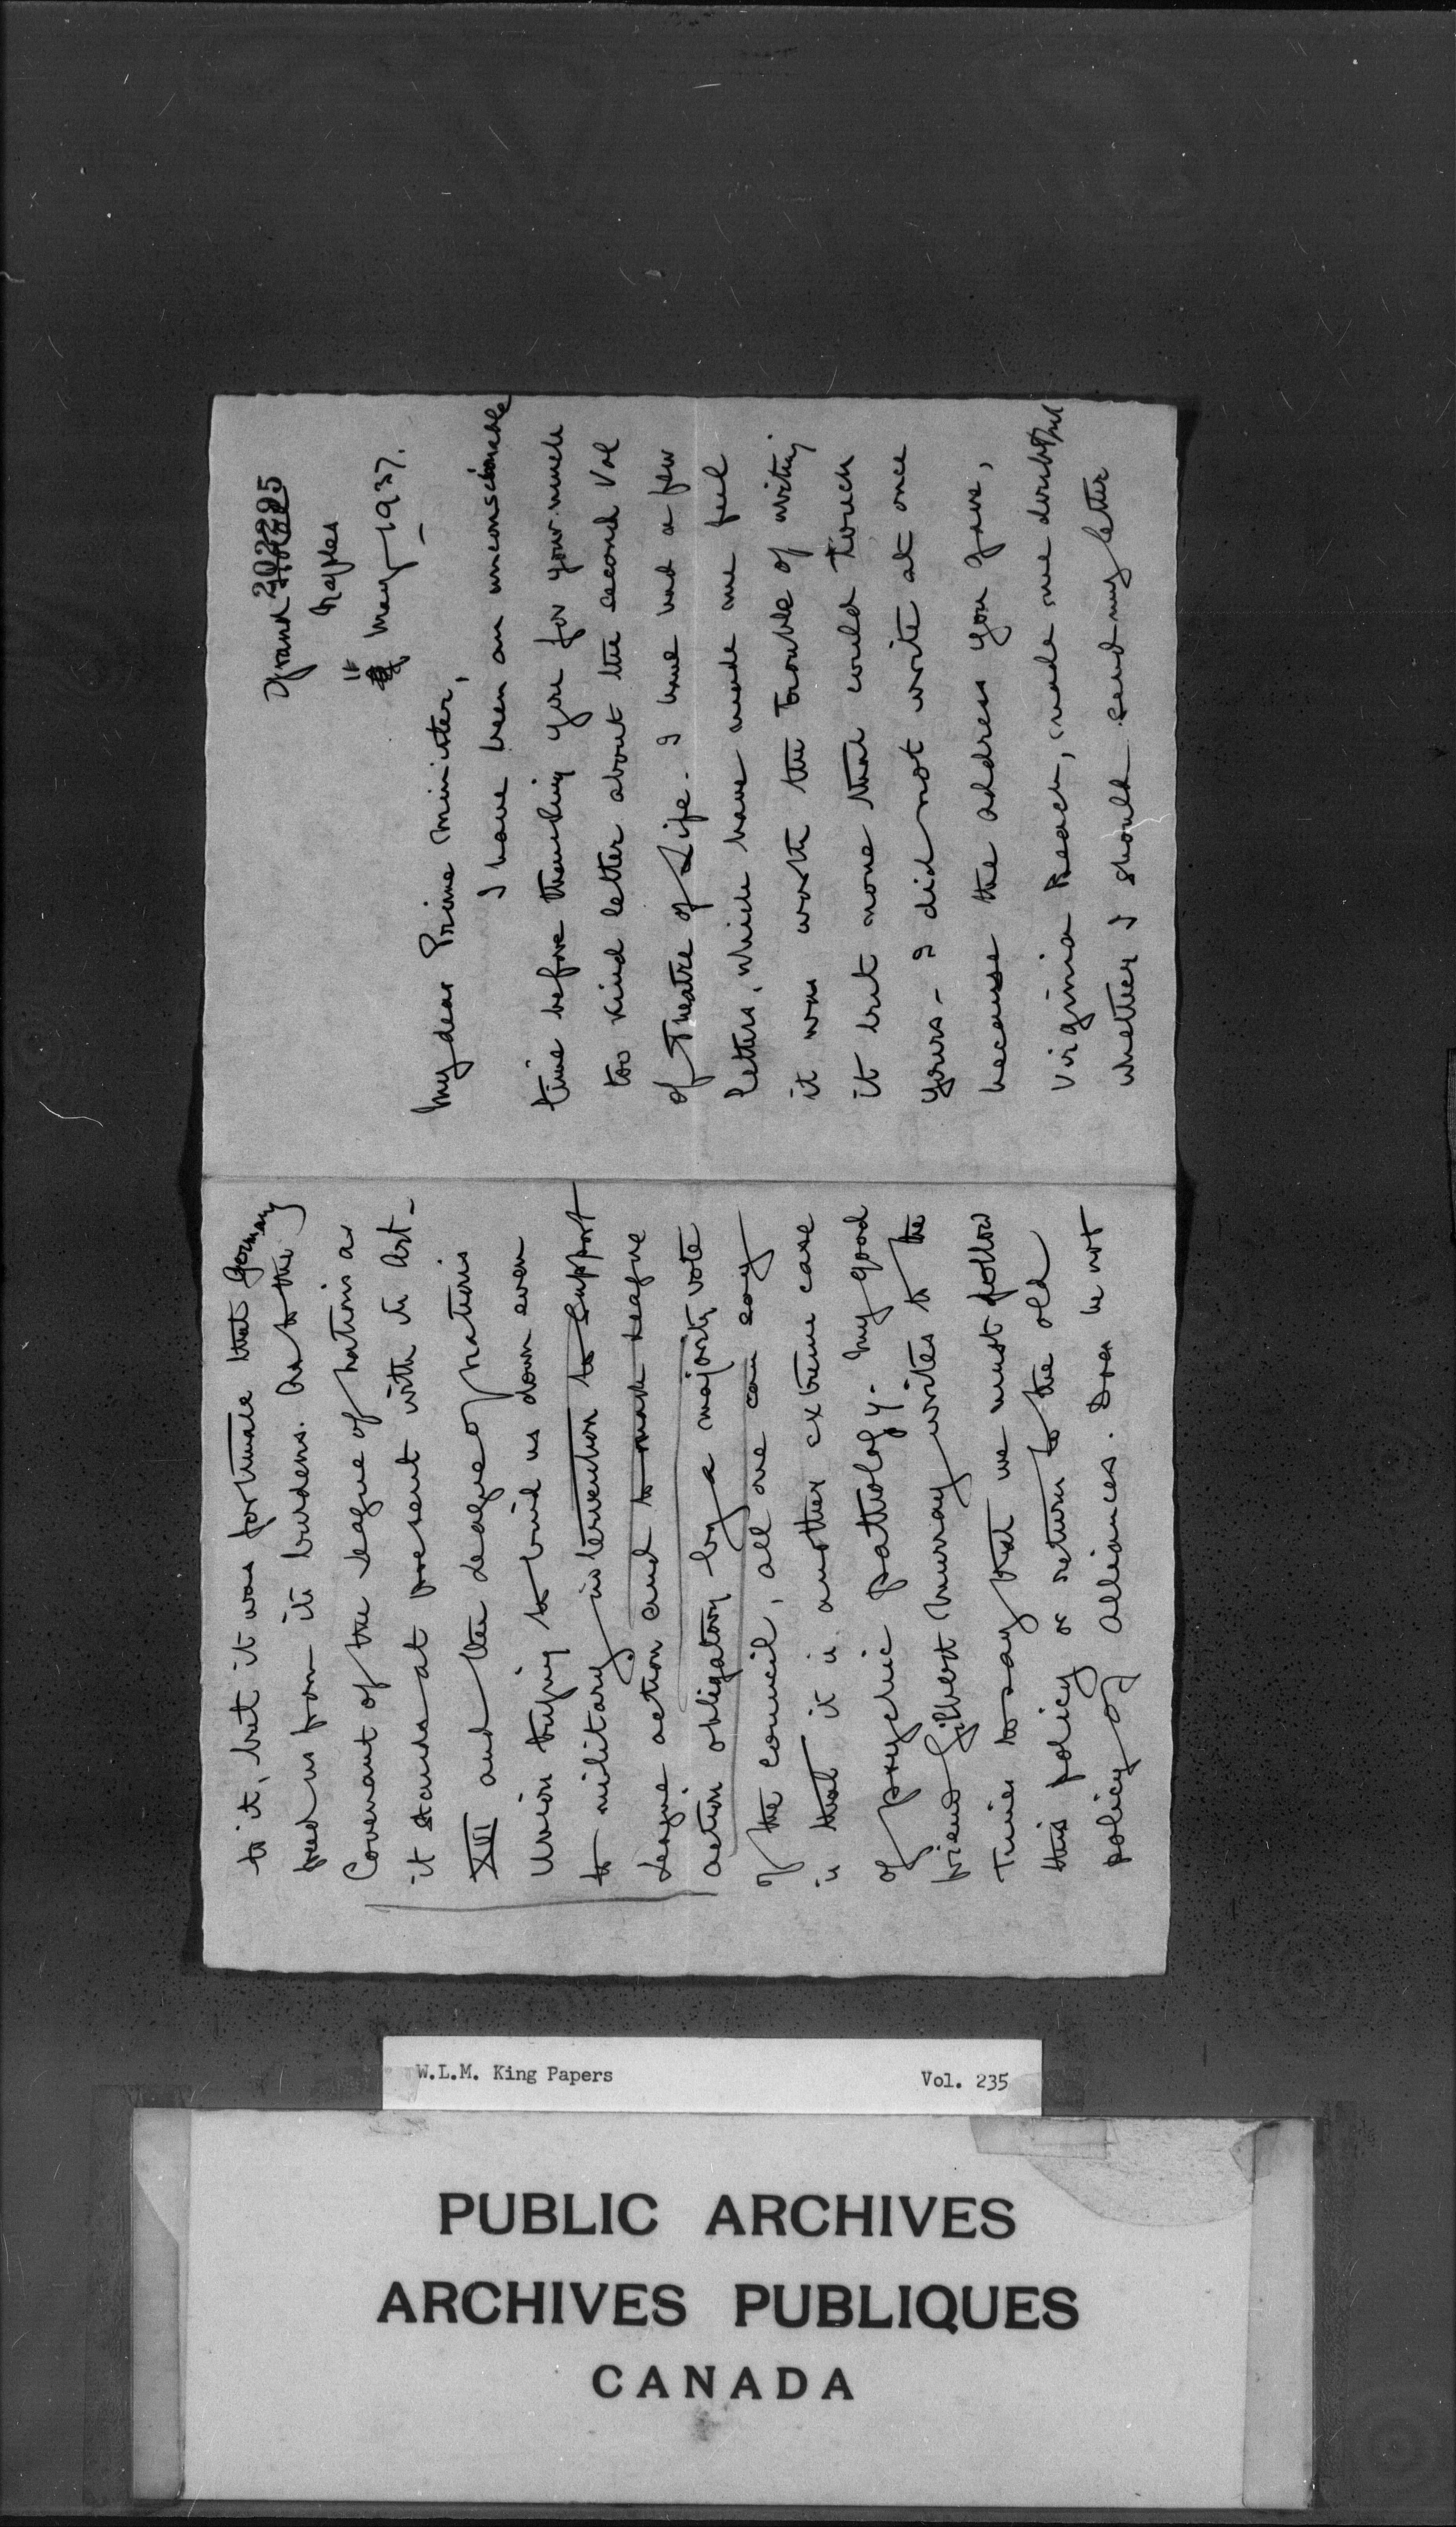 202295
Grand Hotel
Naples
11 May 1937.
My dear Prime Minister,
I have been an unconscionable
time before thanking you for your much
too kind letter about the second Vol
of Theatre of Life. I have had a few
letters, which have made me feel
it was worth the trouble of writing
it but none that could touch
yours - I did not write at once
because the address you gave,
Virginia Beach, made me doubtful
whether I should send my letter
to it, but it was fortunate that Germany
freed us from its burdens. As to the
Covenant of the League of Nations as
it stands at present with its Art-
XVI and the League of Nations
Union trying to bind us down even
to military intervention to support
League action and to make League
action obligatory by a majority vote
of the council, all one can say
is that it is another extreme case
of psychic pathology. My good
friend Gilbert Murray writes to the
Times to say that we must follow
this policy or return to the old
policy of alliances. Does he not
W.L.M. King Papers Vol. 235
PUBLIC ARCHIVES
ARCHIVES PUBLIQUES
CANADA